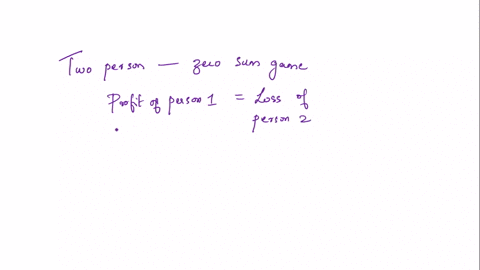 Two person — zero sum game
Profit of person 1 = Loss of
person 2